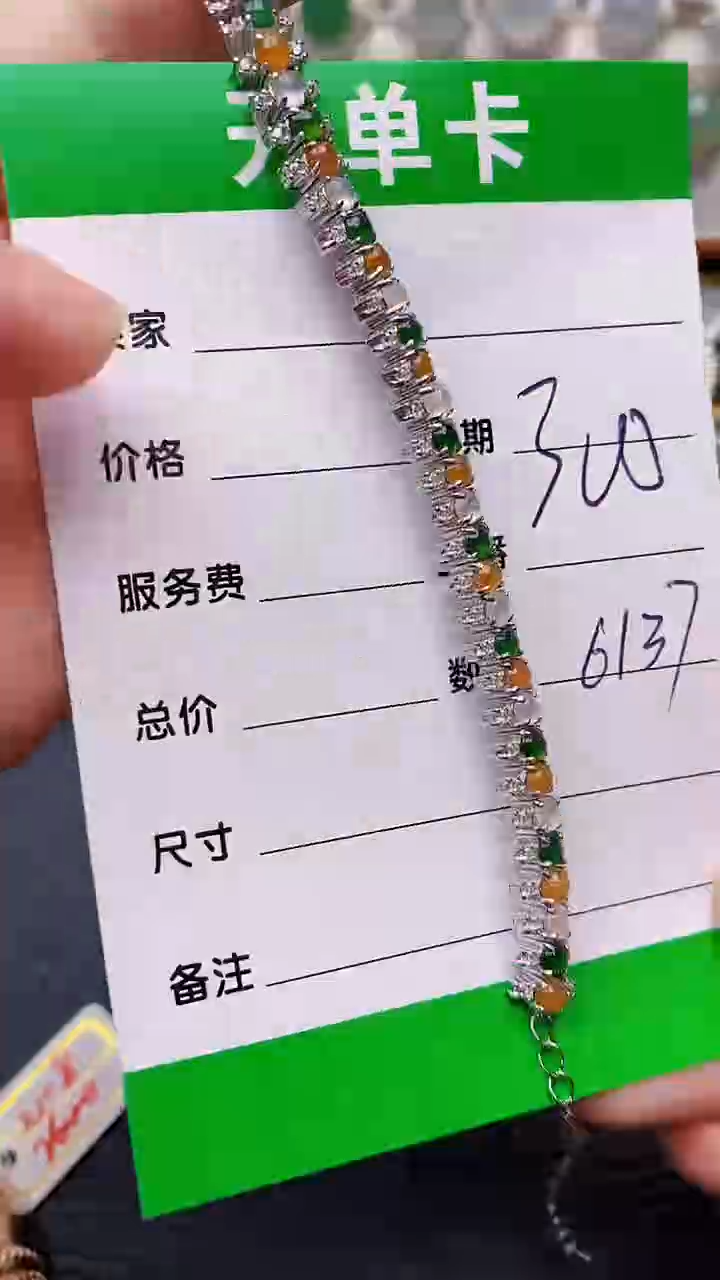 开单卡
家
价格 期 300
服务费
总价 数 6137
尺寸
备注